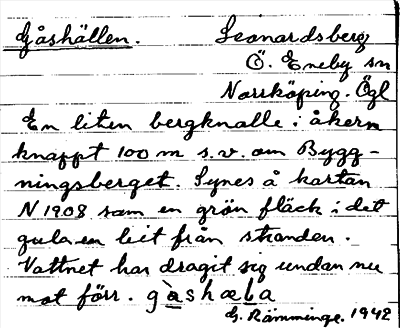 Gåshällen. Leonardsberg
Ö. Eneby sn
Norrköping. Ögl
En liten bergknalle i åkern
knappt 100 m s.v. om Bygg-
ningsberget. Synes å kartan
N 1908 som en grön fläck i det
gula en bit från stranden.
Vattnet har dragit sig undan nu
mot förr. gàshæla
G. Rämminge. 1942